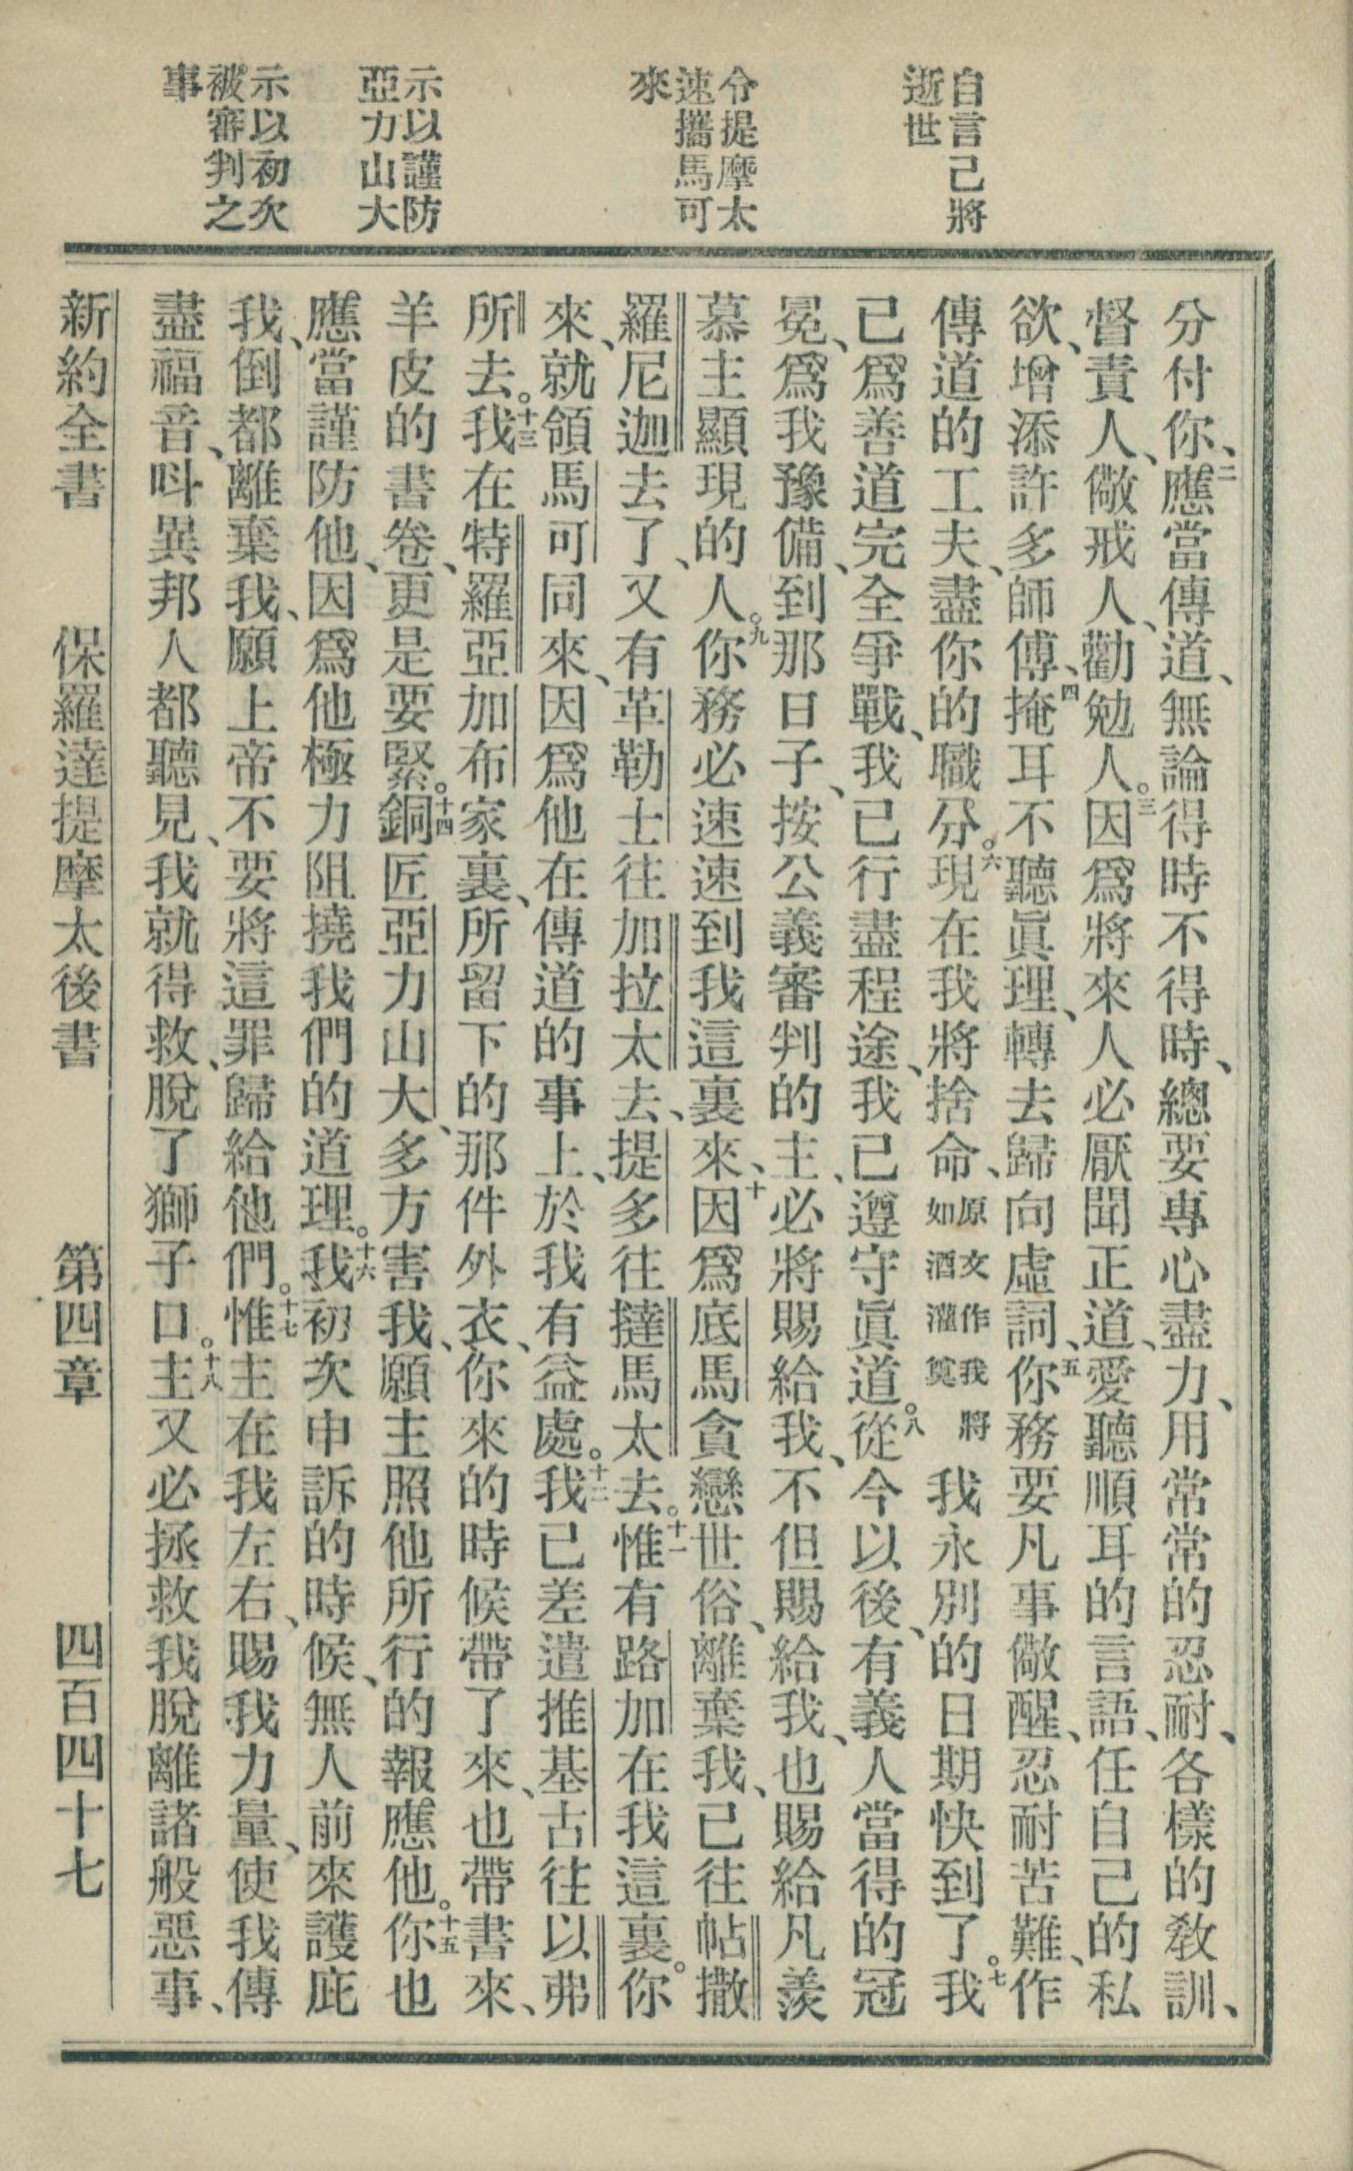 自言己將
逝世
令提摩太
速攜馬可
來
示以謹防
亞力山大
示以初次
被審判之
事
分付你、二應當傳道、無論得時不得時、總要專心盡力、用常常的忍耐、各樣的敎訓、
督責人、儆戒人、勸勉人。三因爲將來人必厭聞正道、愛聽順耳的言語、任自己的私
欲、增添許多師傅、四掩耳不聽眞理、轉去歸向虛詞、五你務要凡事儆醒、忍耐苦難、作
傳道的工夫、盡你的職分。六現在我將捨命、原文作我將如酒灌奠我永別的日期快到了。七我
已爲善道完全爭戰、我已行盡程途、我已遵守眞道。八從今以後、有義人當得的冠
冕、爲我豫備、到那日子、按公義審判的主、必將賜給我、不但賜給我、也賜給凡羨
慕主顯現的人。九你務必速速到我這裏來、十因爲底馬貪戀世俗、離棄我、已往帖撒
羅尼迦去了、又有革勒士往加拉太去、提多往撻馬太去。十一惟有路加在我這裏。你
來、就領馬可同來、因爲他在傳道的事上、於我有益處。十二我已差遣推基古往以弗
所去。十三我在特羅亞加布家裏、所留下的那件外衣、你來的時候帶了來、也帶書來、
羊皮的書卷、更是要緊。十四銅匠亞力山大、多方害我、願主照他所行的報應他。十五你也
應當謹防他、因爲他極力阻撓我們的道理。十六我初次申訴的時候、無人前來護庇
我、倒都離棄我、願上帝不要將這罪歸給他們。十七惟主在我左右、賜我力量、使我傳
盡福音、呌異邦人都聽見、我就得救、脫了獅子口。十八主又必拯救我脫離諸般惡事、
新約全書 保羅達提摩太後書 第四章 四百四十七